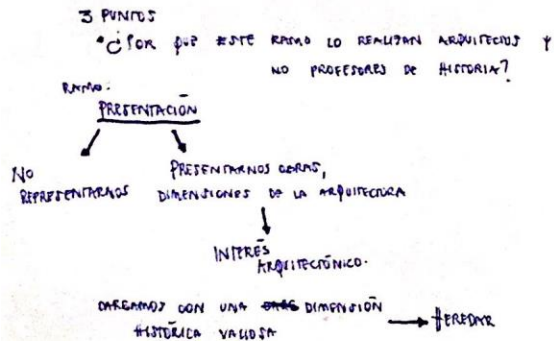 3 PUNTOS
• ¿POR QUÉ ESTE RAMO LO REALIZAN ARQUITECTOS Y
NO PROFESORES DE HISTORIA?
RAMO:
PRESENTACIÓN
NO
REPRESENTARNOS
PRESENTARNOS OBRAS,
DIMENSIONES DE LA ARQUITECTURA
INTERÉS
ARQUITECTÓNICO.
CARGAMOS CON UNA DIMENSIÓN
HISTÓRICA VALIOSA
HEREDAR